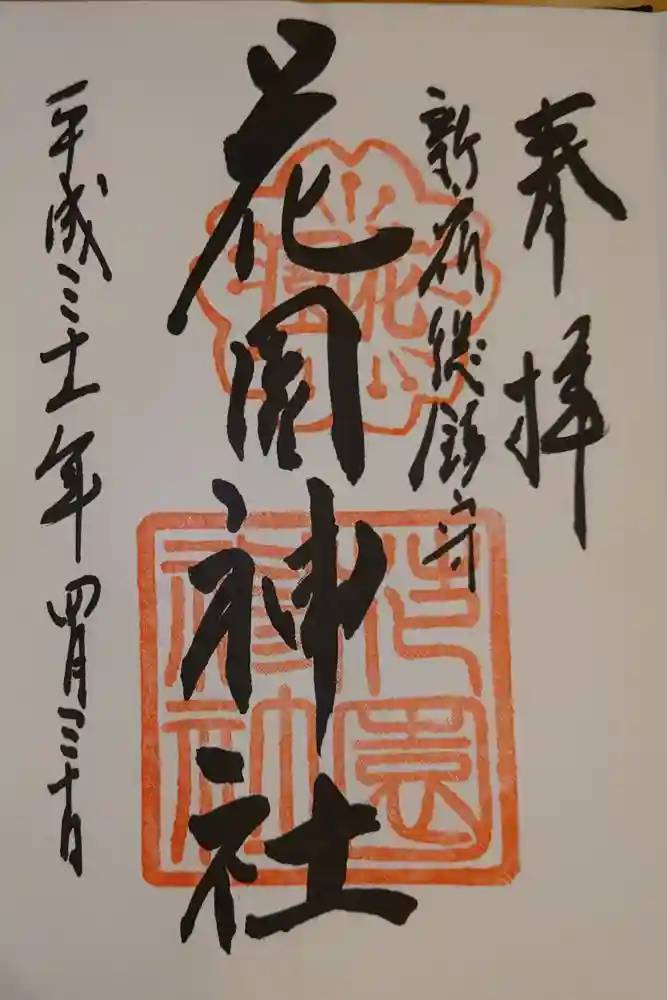 奉拝
新宿総鎮守
花園神社
平成三十一年四月三十日
花園
花園神社